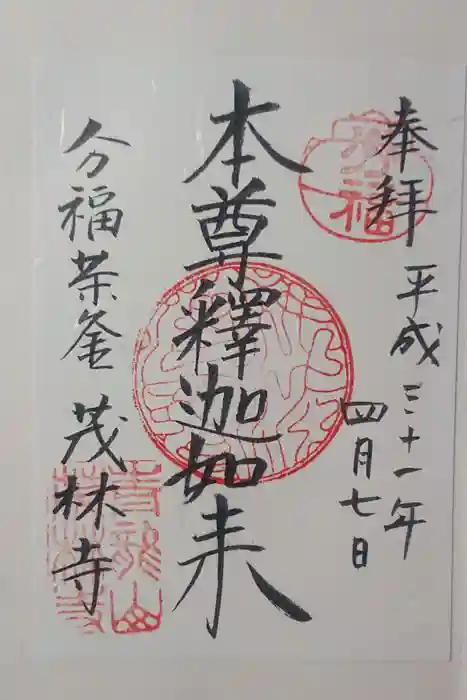 奉拝
平成三十一年
四月七日
本尊釋迦如来
分福茶釜
茂林寺
分福
青龍山
茂林寺